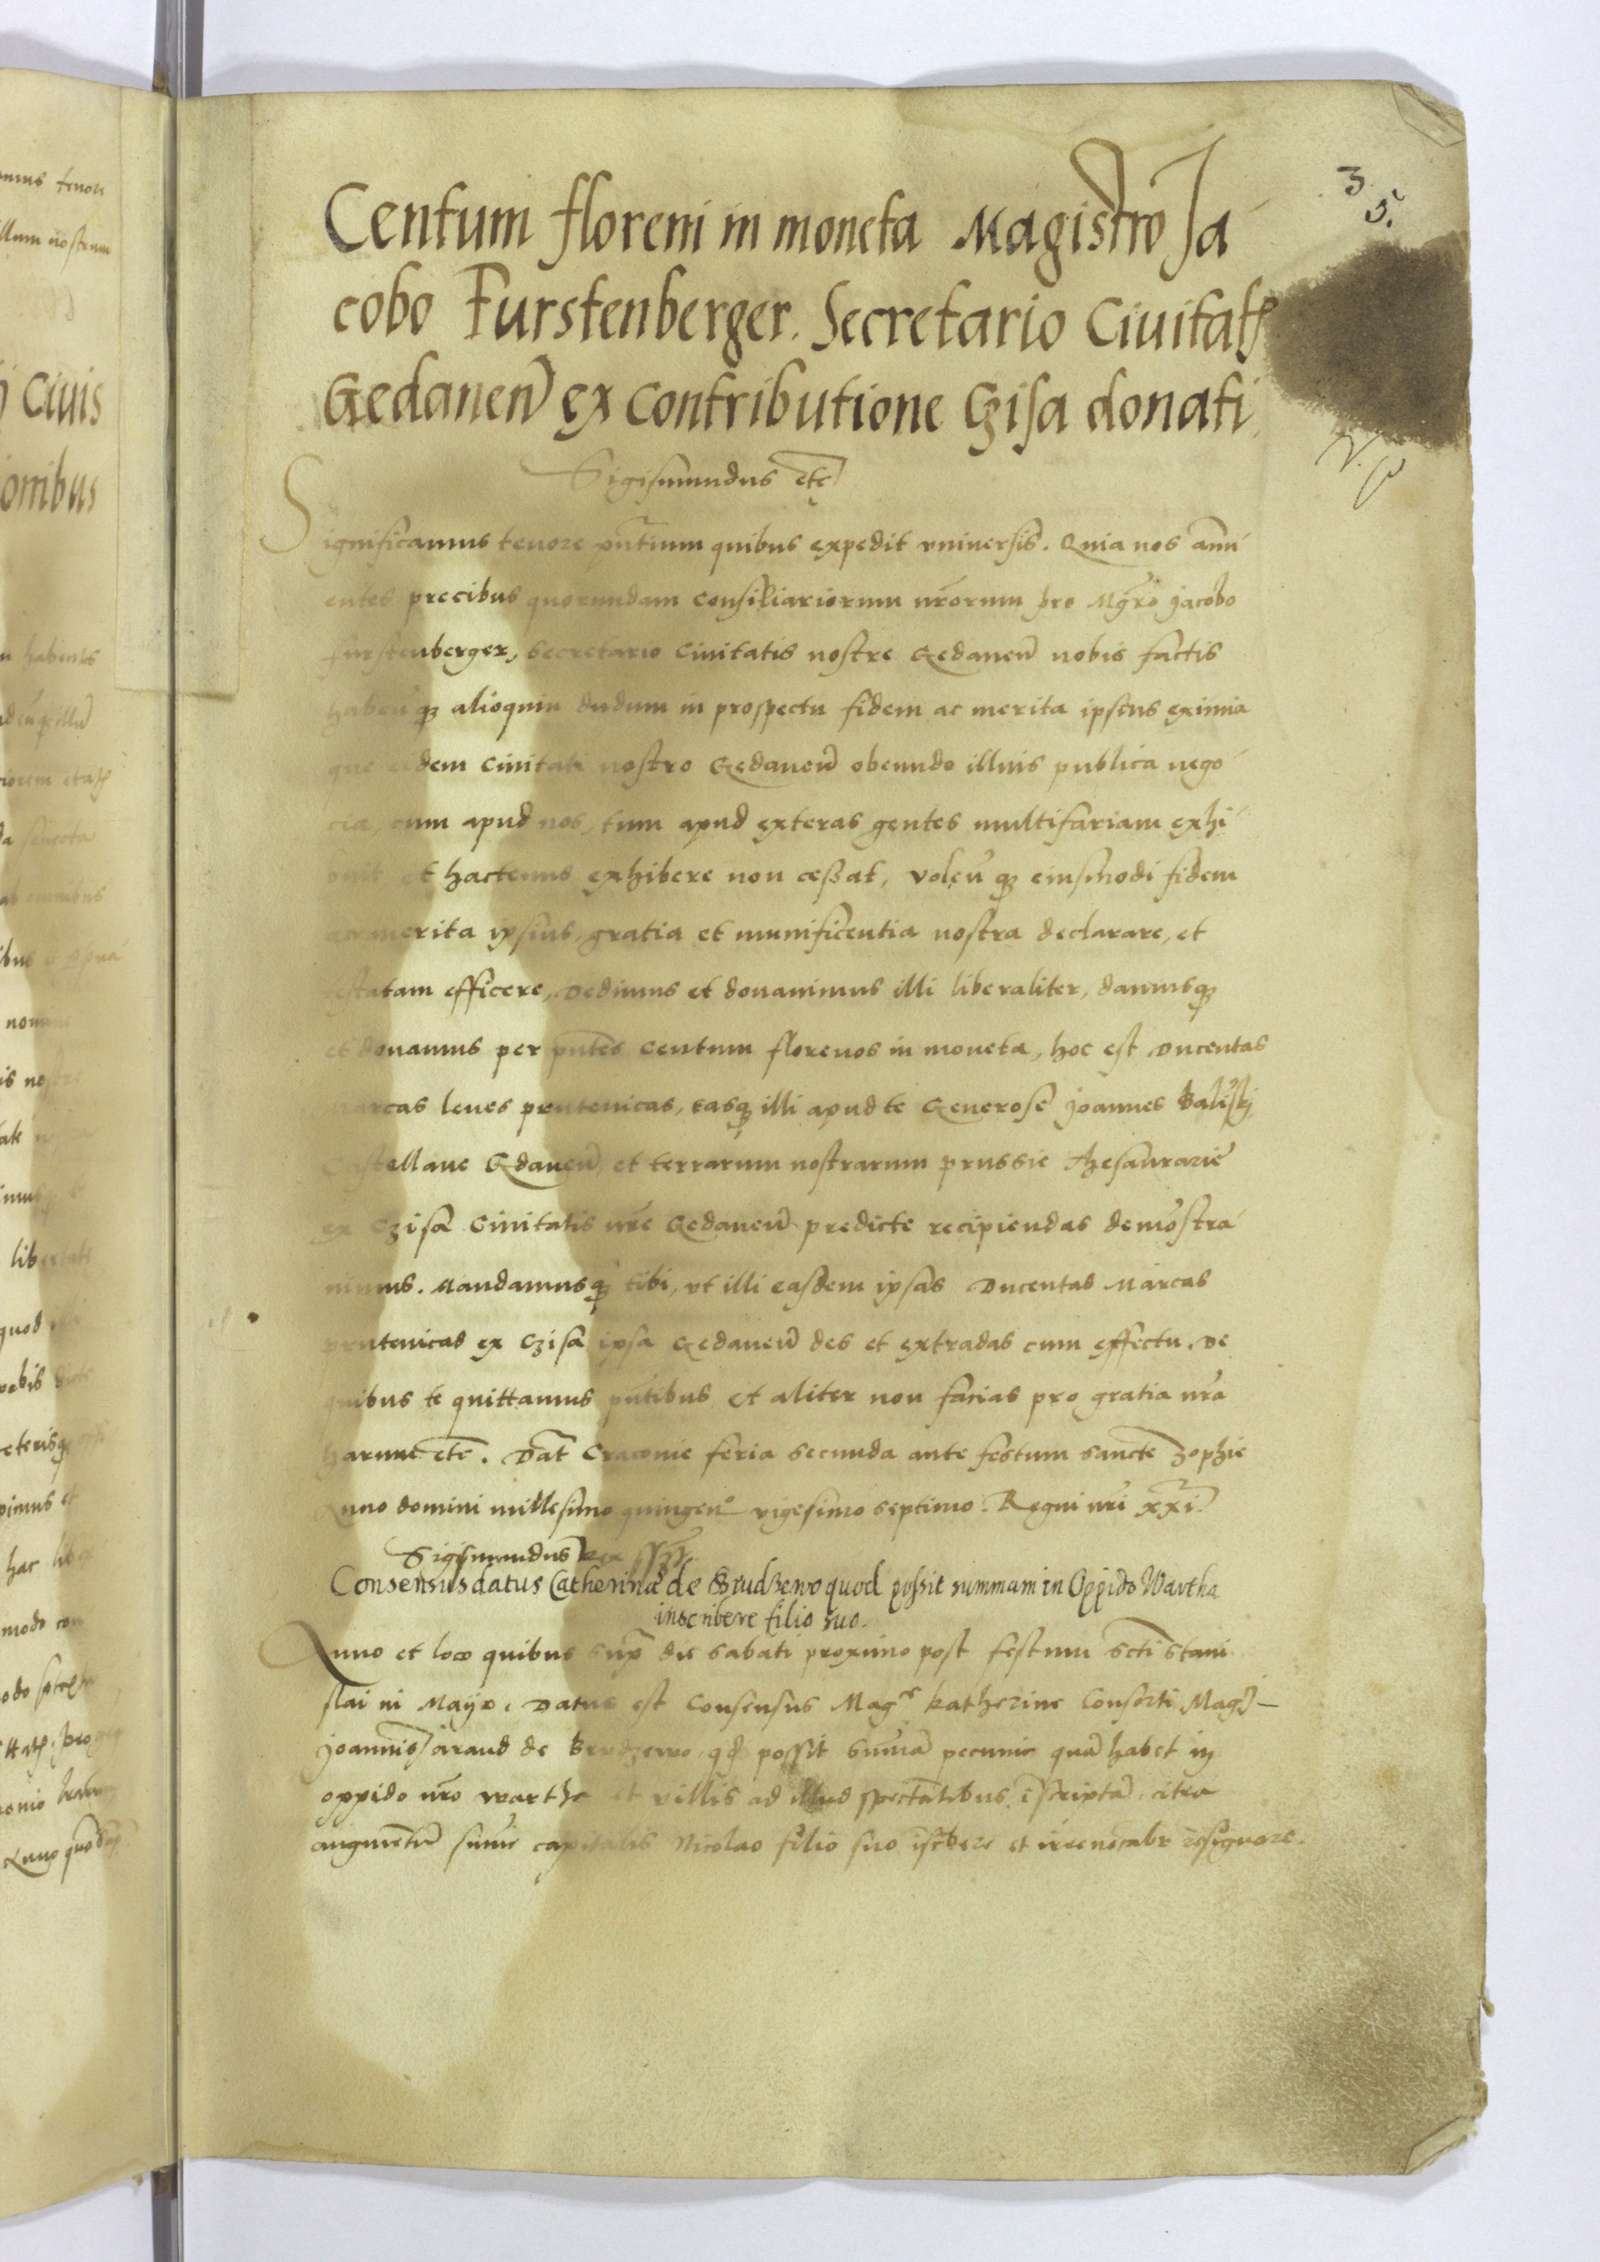 3
5.
Centum floreni in moneta Magistro Ja
cobo Furstenberger. Secretario Ciuitatꝭ
Gedanen̄ ex Contributione Czisa donati.
Sigismundus etc̄
Significamus tenore pn̄tium quibus expedit vniuersis. Quia nos anni
entes precibus quorundam Consiliariorum nr̄orum pro Mgr̄o Jacobo
furstenberger, Secretario Ciuitatis nostre Gedanen̄ nobis factis
habenꝭ qꝫ alioquin dudum in prospectu fidem ac merita ipsius eximia
que eidem Ciuitati nostro Gedanen̄ obeundo illius publica nego
cia, cum apud nos, tum apud exteras gentes multifariam exhi
buit et hactenus exhibere non cessat, volen̄ qꝫ eiusmodi fidem
ac merita ipsius, gratia et munificentia nostra declarare, et
testatam efficere, Dedimus et donauimus illi liberaliter, damusqꝫ
et donamus per pn̄tes Centum florenos in moneta, hoc est Ducentas
marcas leues prutenicas, easqꝫ illi apud te Generose Joannes Baliński
Castellane Gdanen̄, et terrarum nostrarum prussie Thesaurarie
ex Czisa Ciuitatis nr̄e Gedanen̄ predicte recipiendas demōstra
uimus. Mandamusqꝫ tibi, vt illi easdem ipsas Ducentas Marcas
prutenicas ex Czisa ipsa Gedanen̄ des et extradas cum effectu. De
quibus te quittamus pn̄tibus Et aliter non facias pro gratia nr̄a
harum etc̄. Dat̄ Cracouie feria secunda ante festum sancte Zophie
Anno domini millesimo quingen̄ᵒ vigesimo septimo. Regni nr̄i xxi.
Sigismundus Rex
Consensus datus Catherinæ de Brudzewo quod possit summam in Oppido Wartha
inscribere filio suo.
Anno et loco quibus supra die sabati proximo post festum Scti Stani
slai in Mayo, Datus est Consensus Mag.ᶜᵉ Katherine Consorti Mag.ci
Joannis Jarand de Brudzewo, qd possit summā pecunie quā habet in
oppido nr̄o warthe et villis ad illud spectātibus īscriptā, citra
augmentū sum̄e capitalis Nicolao filio suo īscribere et irreuocabr̄ resignare.